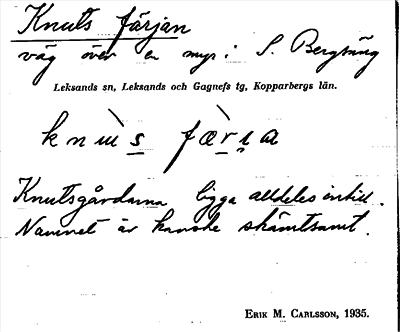 Knuts färjan
väg över en myr i S. Bergsäng
Leksands sn, Leksands och Gagnefs tg, Kopparbergs län.
knùt̠s fæ̀r̠ɩa
Knutsgårdarna ligga alldeles intill.
Namnet är kanske skämtsamt.
ERIK M. CARLSSON, 1935.